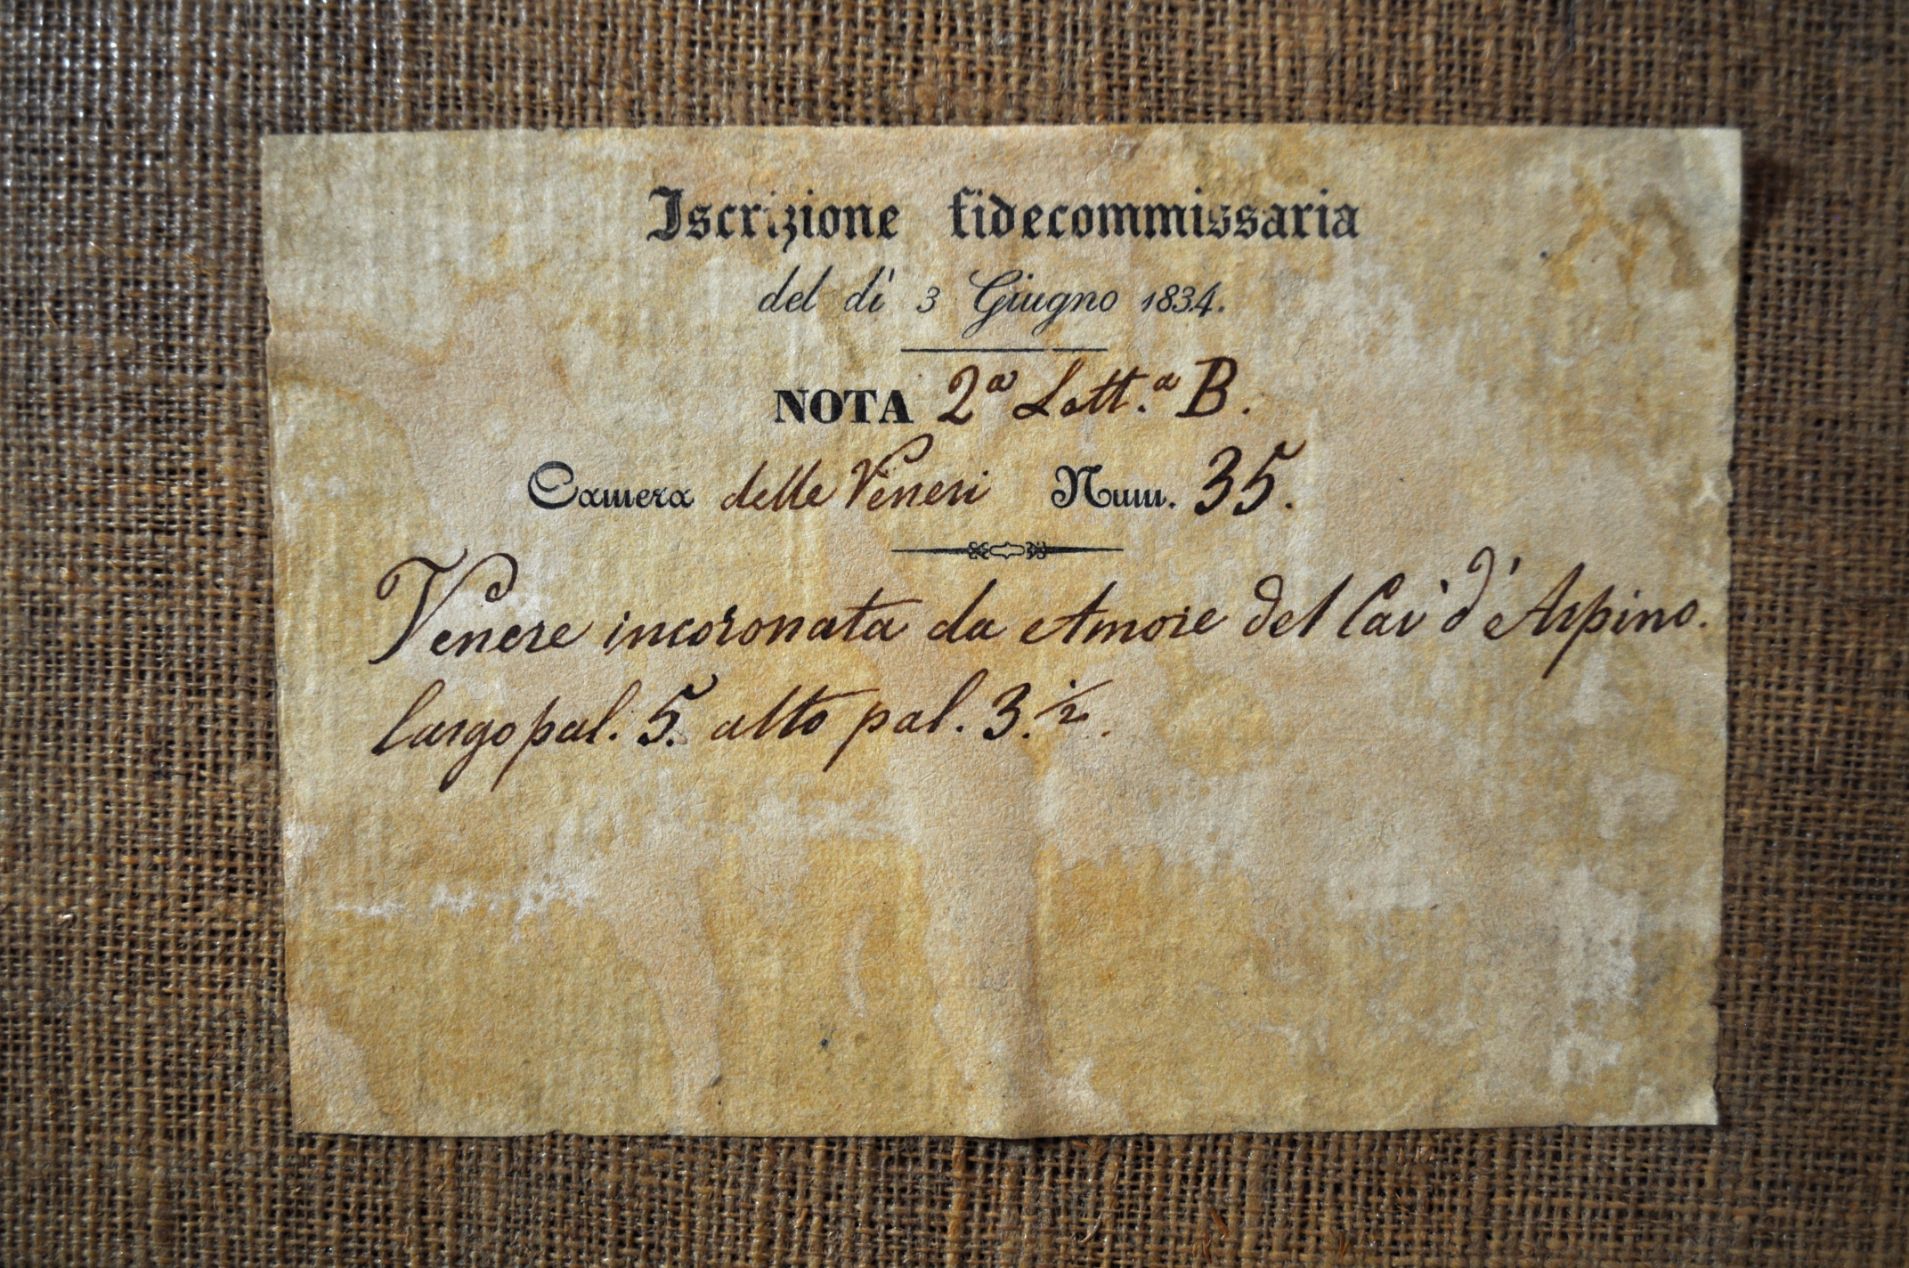 Iscrizione fidecommissaria
del dì 3 Giugno 1834.
NOTA 2ª Lett.ª B.
Camera delle Veneri Num. 35.
Venere incoronata da Amore del Cav' d'Arpino.
largo pal. 5. alto pal. 3. ½.